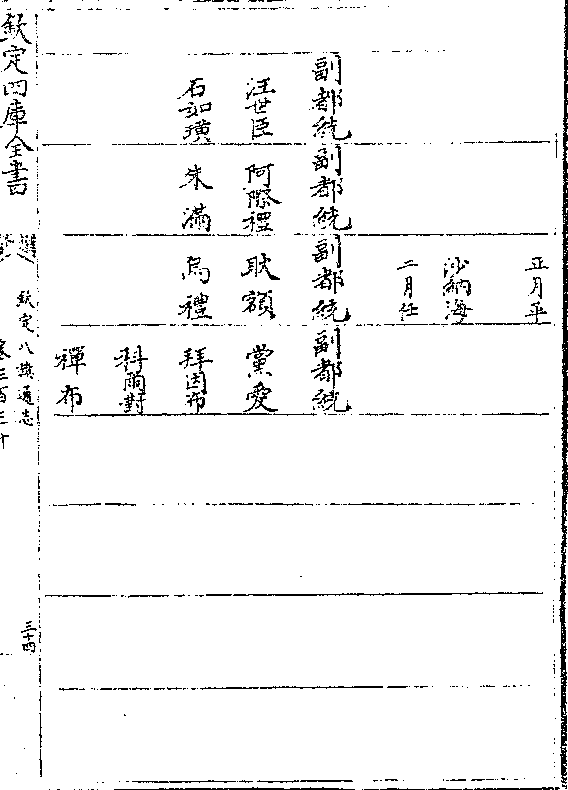 正月卒
沙納海
二月任
副都統 副都統 副都統 副都統
汪世臣 阿際禮 耿額 黨愛
石如璜 朱滿 烏禮 拜因布
科爾對
禪布
欽定四庫全書
欽定八旗通志
卷三百三十
三十四